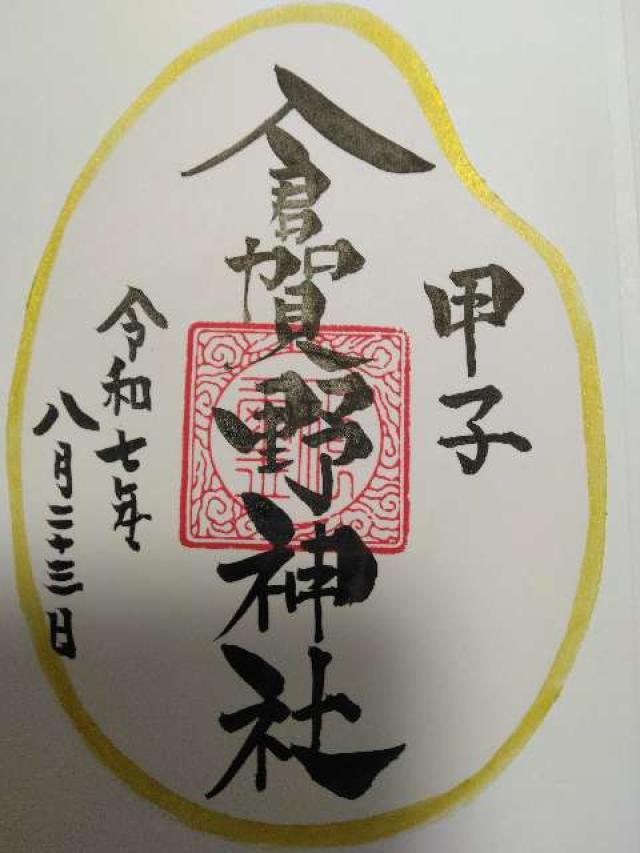 甲子
倉賀野神社
令和七年
八月二十三日